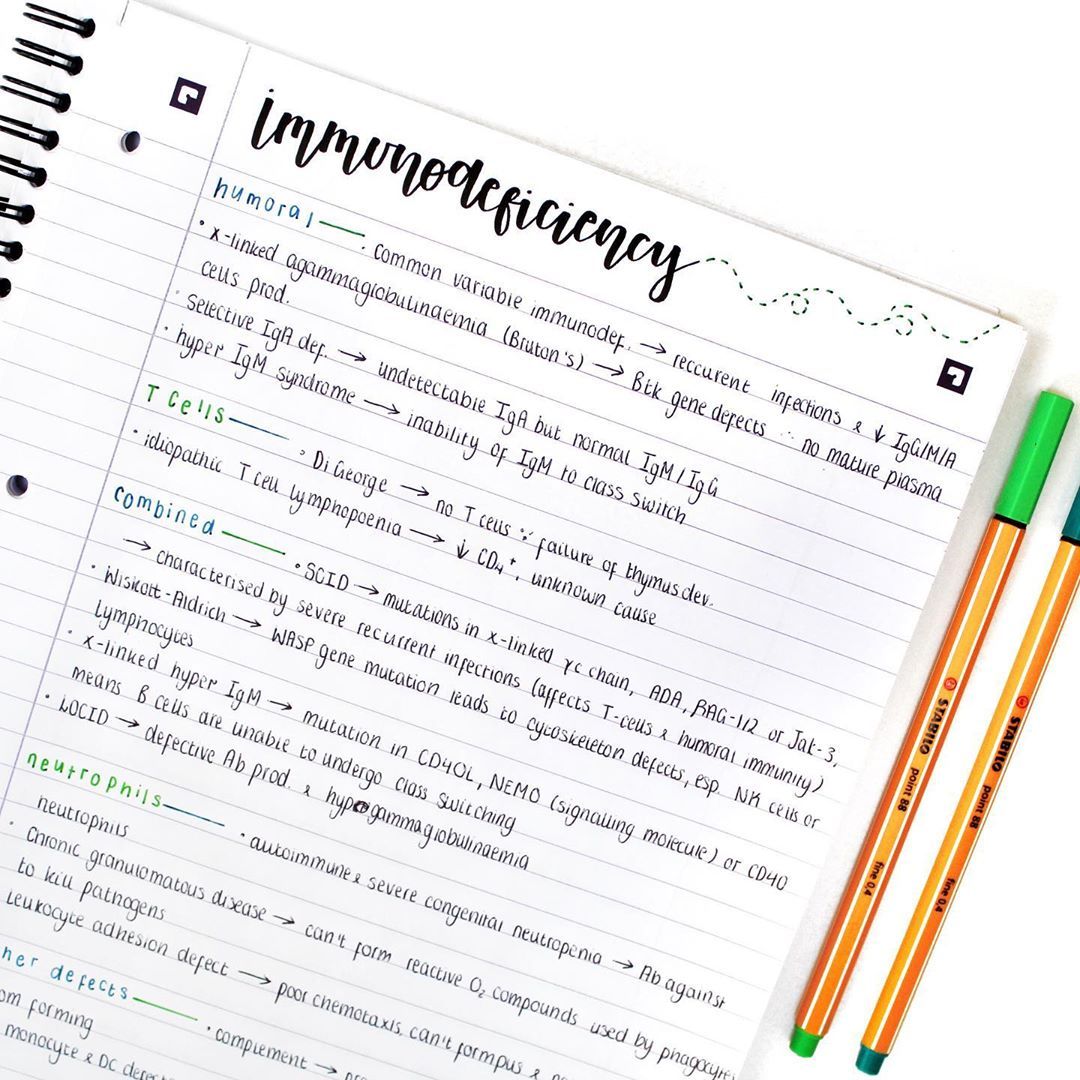 immunodeficiency
humoral
· Common variable immunodef. → reccurent infections & ↓ IgG/M/A
· x-linked agammaglobulinaemia (Bruton's) → Btk gene defects ∴ no mature plasma
cells prod.
· Selective IgA def. → undetectable IgA but normal IgM/IgG
· hyper IgM syndrome → inability of IgM to class switch
T Cells
· Di George → no T cells ∵ failure of thymus dev.
· idiopathic T cell lymphopoenia → ↓ CD4+, unknown cause
Combined
· SCID → mutations in x-linked γc chain, ADA, RAG-1/2 or Jak-3,
→ characterised by severe recurrent infections (affects T-cells & humoral immunity)
· Wiskott-Aldrich → WASP gene mutation leads to cytoskeleton defects, esp. NK cells or
lymphocytes
· x-linked hyper IgM → mutation in CD40L, NEMO (signalling molecule) or CD40
means B cells are unable to undergo class switching
· LOCID → defective Ab prod. & hypogammaglobulinaemia
neutrophils
· autoimmune & severe congenital neutropenia → Ab against
neutrophils
· Chronic granulomatous disease → can't form reactive O2 compounds used by phagocytes
to kill pathogens
Leukocyte adhesion defect → poor chemotaxis, can't form pus &
her defects
· complement →
om forming
monocyte & DC defect
STABILO point 88 fine 0.4
STABILO point 88 fine 0.4